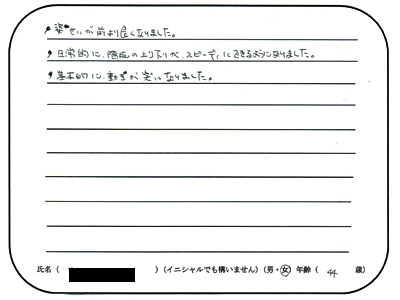 ・姿せいが前より良くなりました。
・日常的に、階段の上り下りが、スピーディにできるようになりました。
・基本的に、動きが楽になりました。
氏名（　　　）（イニシャルでも構いません）（男・女）年齢（ 44 歳）